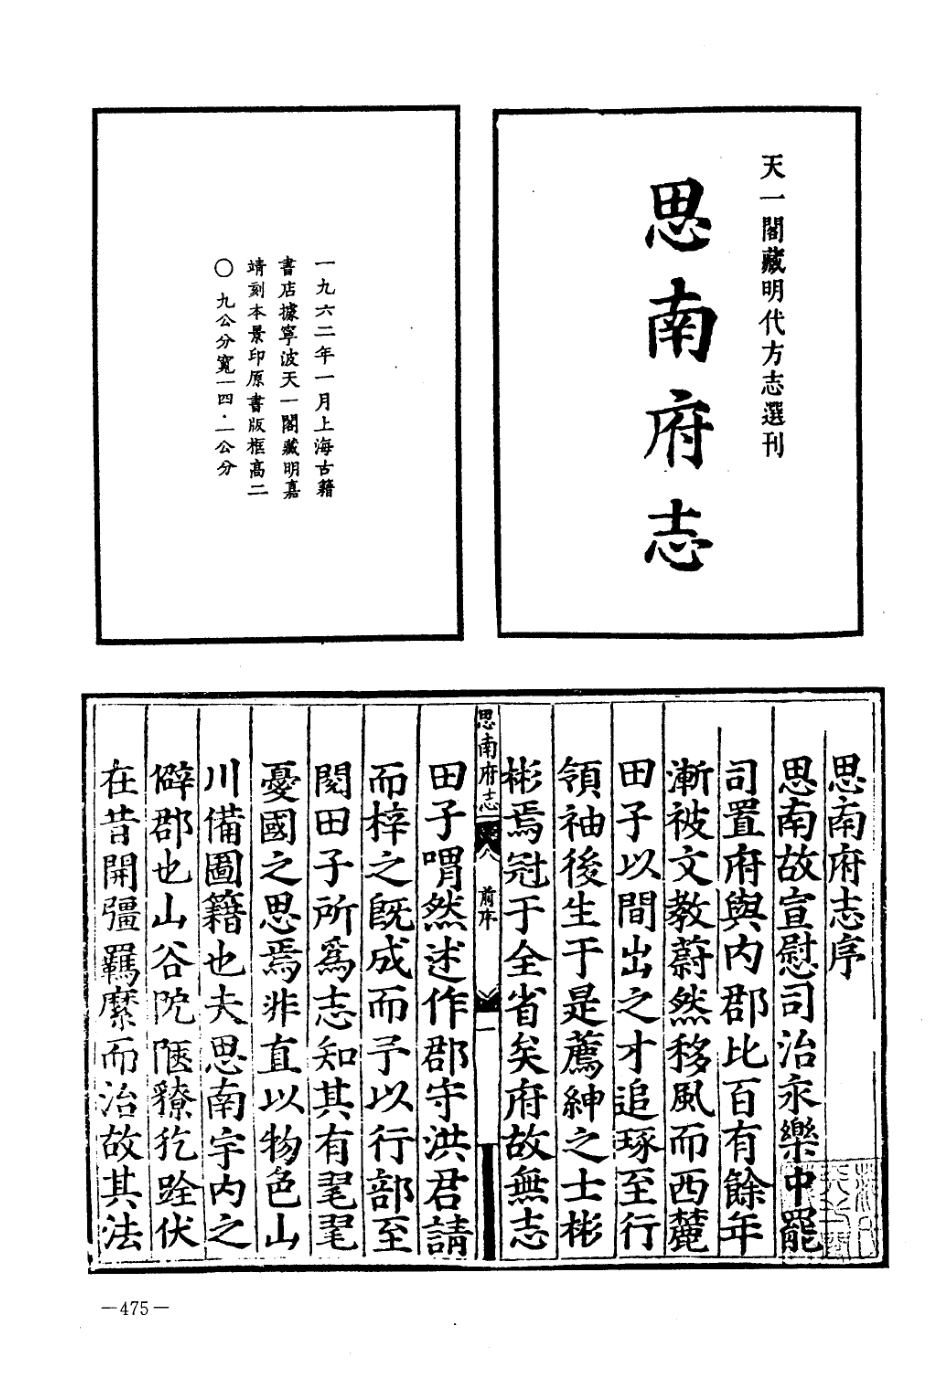 天一閣藏明代方志選刊
思南府志
一九六二年一月上海古籍
書店據寧波天一閣藏明嘉
靖刻本景印原書版框高二
〇·九公分寬一四·一公分
思南府志序
思南故宣慰司治永樂中罷
司置府與內郡比百有餘年
漸被文教蔚然移風而西麓
田子以間出之才追琢至行
領袖後生于是薦紳之士彬
彬焉冠于全省矣府故無志
思南府志
前序
一
田子喟然述作郡守洪君請
而梓之既成而予以行部至
閱田子所為志知其有毣毣
憂國之思焉非直以物色山
川備圖籍也夫思南宇內之
僻郡也山谷阨陿獠犵跧伏
在昔開彊羈縻而治故其法
—475—